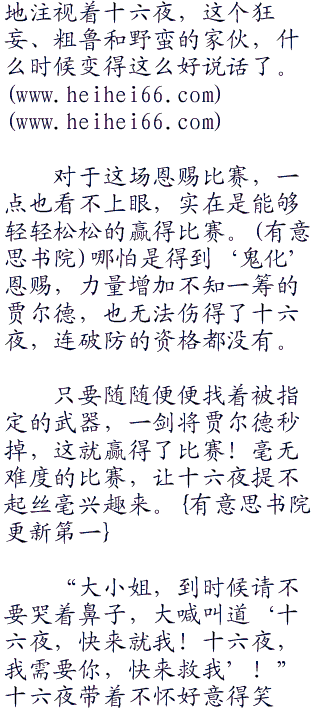 地注视着十六夜，这个狂
妄、粗鲁和野蛮的家伙，什
么时候变得这么好说话了。
(www.heihei66.com)
(www.heihei66.com)
对于这场恩赐比赛，一
点也看不上眼，实在是能够
轻轻松松的赢得比赛。(有意
思书院)哪怕是得到‘鬼化’
恩赐，力量增加不知一筹的
贾尔德，也无法伤得了十六
夜，连破防的资格都没有。
只要随随便便找着被指
定的武器，一剑将贾尔德秒
掉，这就赢得了比赛！毫无
难度的比赛，让十六夜提不
起丝毫兴趣来。{有意思书院
更新第一}
“大小姐，到时候请不
要哭着鼻子，大喊叫道‘十
六夜，快来就我！十六夜，
我需要你，快来救我’！”
十六夜带着不怀好意得笑